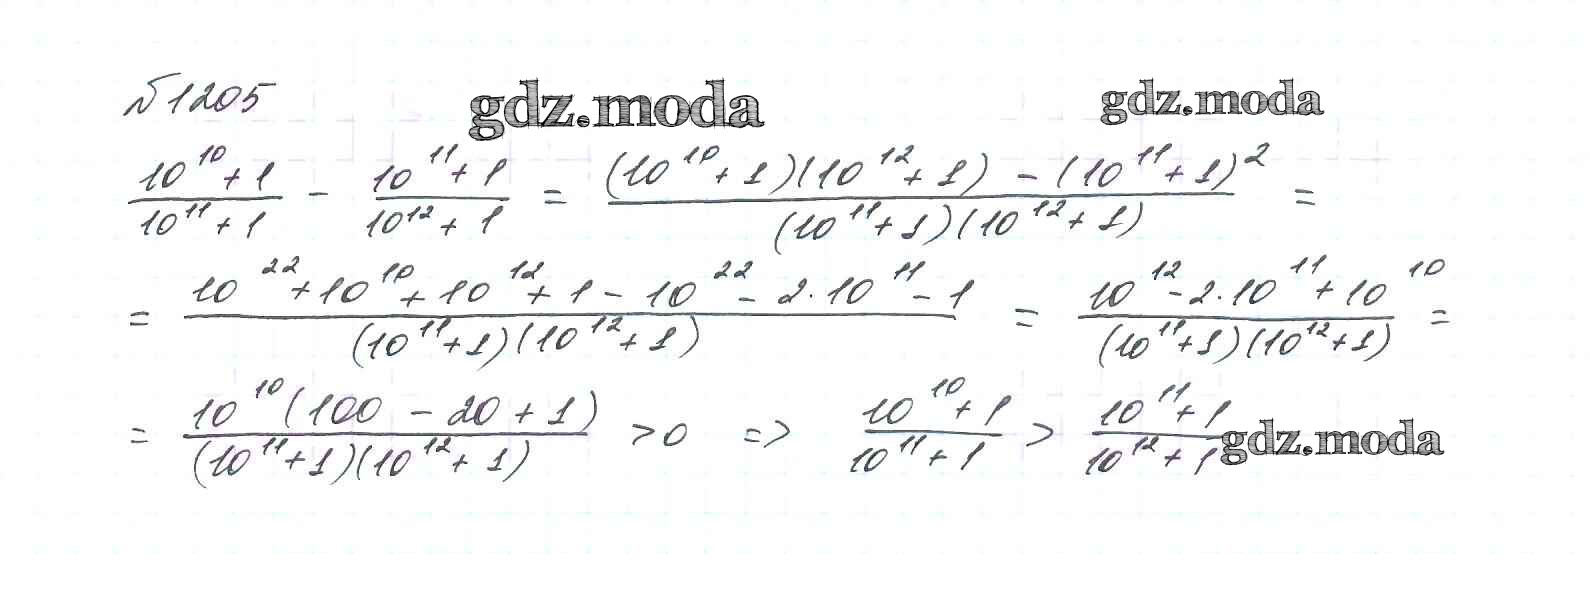 №1205 gdz.moda gdz.moda
(10^10 + 1)/(10^11 + 1) - (10^11 + 1)/(10^12 + 1) = ((10^10 + 1)(10^12 + 1) - (10^11 + 1)^2)/((10^11 + 1)(10^12 + 1)) =
= (10^22 + 10^10 + 10^12 + 1 - 10^22 - 2·10^11 - 1)/((10^11 + 1)(10^12 + 1)) = (10^12 - 2·10^11 + 10^10)/((10^11 + 1)(10^12 + 1)) =
= (10^10 (100 - 20 + 1))/((10^11 + 1)(10^12 + 1)) > 0 => (10^10 + 1)/(10^11 + 1) > (10^11 + 1)/(10^12 + 1) gdz.moda